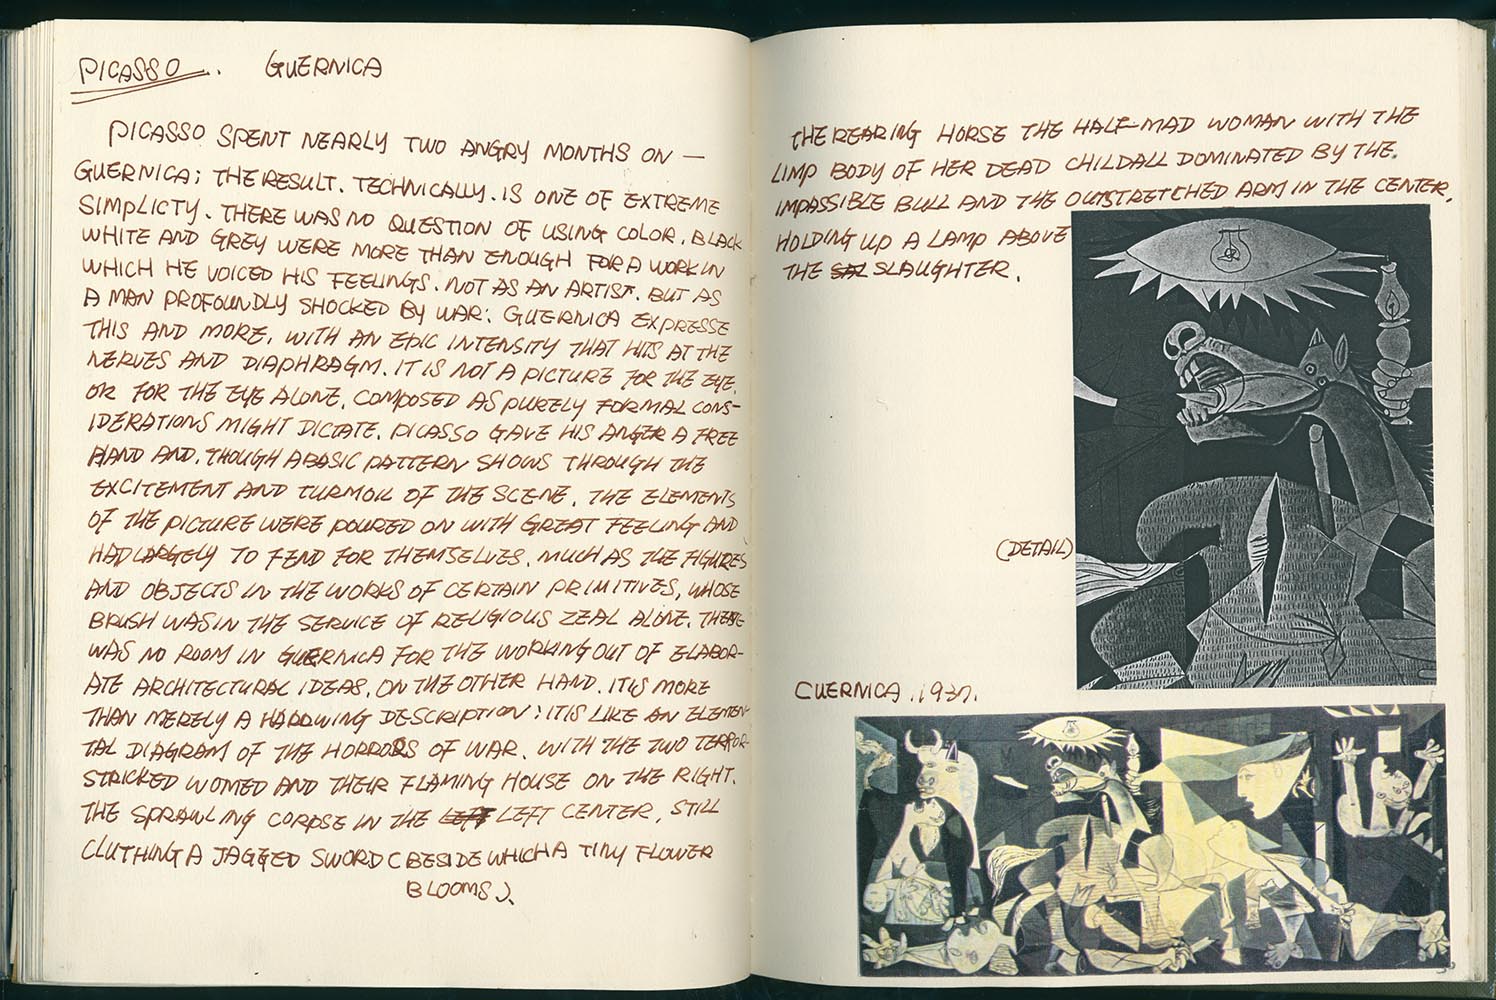 PICASSO. GUERNICA
PICASSO SPENT NEARLY TWO ANGRY MONTHS ON —
GUERNICA; THE RESULT. TECHNICALLY. IS ONE OF EXTREME
SIMPLICTY. THERE WAS NO QUESTION OF USING COLOR. BLACK
WHITE AND GREY WERE MORE THAN ENOUGH FOR A WORK IN
WHICH HE VOICED HIS FEELINGS. NOT AS AN ARTIST. BUT AS
A MAN PROFOUNDLY SHOCKED BY WAR: GUERNICA EXPRESSE
THIS AND MORE, WITH AN EPIC INTENSITY THAT HITS AT THE
NERVES AND DIAPHRAGM. IT IS NOT A PICTURE FOR THE EYE.
OR FOR THE EYE ALONE. COMPOSED AS PURELY FORMAL CONS-
IDERATIONS MIGHT DICTATE. PICASSO GAVE HIS ANGER A FREE
HAND AND. THOUGH A BASIC PATTERN SHOWS THROUGH THE
EXCITEMENT AND TURMOIL OF THE SCENE, THE ELEMENTS
OF THE PICTURE WERE POURED ON WITH GREAT FEELING AND
HAD LARGELY TO FEND FOR THEMSELVES. MUCH AS THE FIGURES
AND OBJECTS IN THE WORKS OF CERTAIN PRIMITIVES, WHOSE
BRUSH WAS IN THE SERVICE OF RELIGIOUS ZEAL ALONE. THERE
WAS NO ROOM IN GUERNICA FOR THE WORKING OUT OF ELABOR-
ATE ARCHITECTURAL IDEAS. ON THE OTHER HAND. IT IS MORE
THAN MERELY A HARROWING DESCRIPTION: IT IS LIKE AN ELEMEN-
TAL DIAGRAM OF THE HORRORS OF WAR. WITH THE TWO TERROR-
STRICKED WOMED AND THEIR FLAMING HOUSE ON THE RIGHT.
THE SPRAWLING CORPSE IN THE LEFT LEFT CENTER, STILL
CLUTHING A JAGGED SWORD (BESIDE WHICH A TINY FLOWER
BLOOMS).
THE REARING HORSE THE HALF-MAD WOMAN WITH THE
LIMP BODY OF HER DEAD CHILDALL DOMINATED BY THE.
IMPASSIBLE BULL AND THE OUTSTRETCHED ARM IN THE CENTER.
HOLDING UP A LAMP ABOVE
THE SAL SLAUGHTER.
(DETAIL)
CUERNICA. 1937.